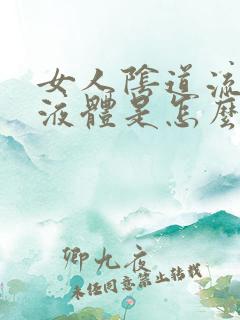 女人陰道流
液體是怎麼
卿九夜
未经同意禁止转载